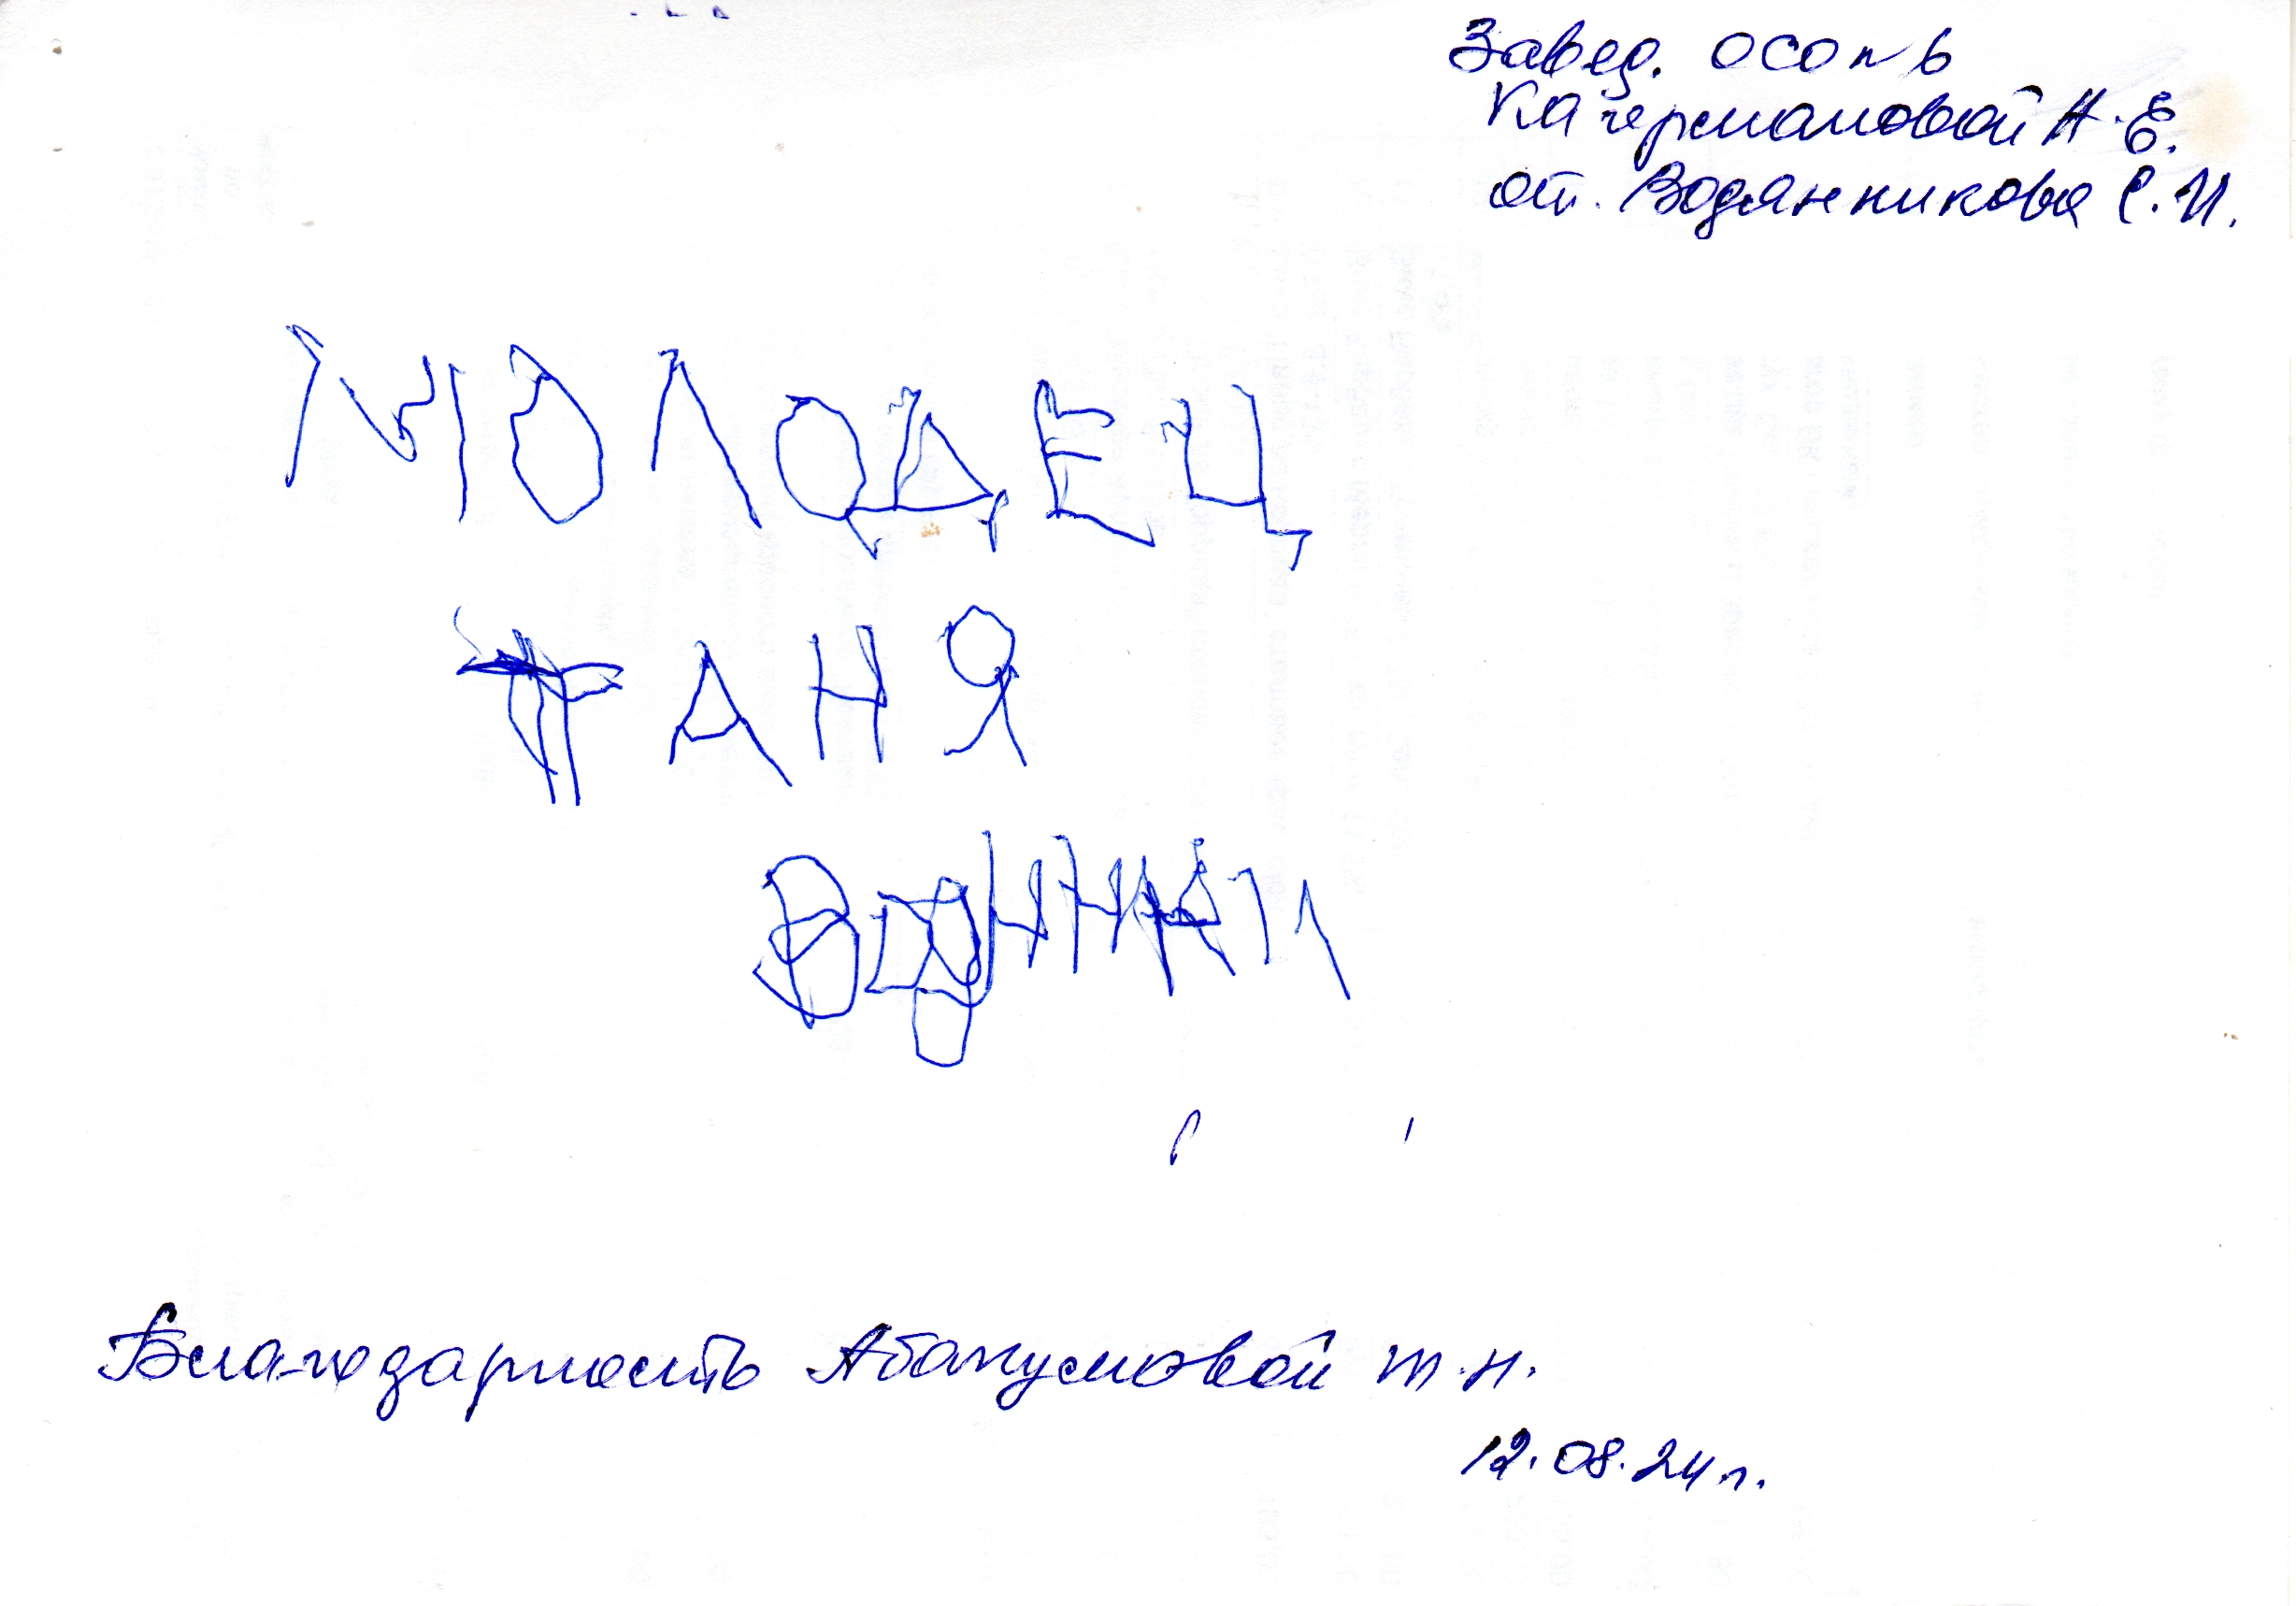 Завед. ОСО №6
Качермановой Н.Е.
от. Водянникова С.И.
МОЛОДЕЦ
ТАНЯ
Благодарность Абакумовой Т.Н.
12.08.24г.